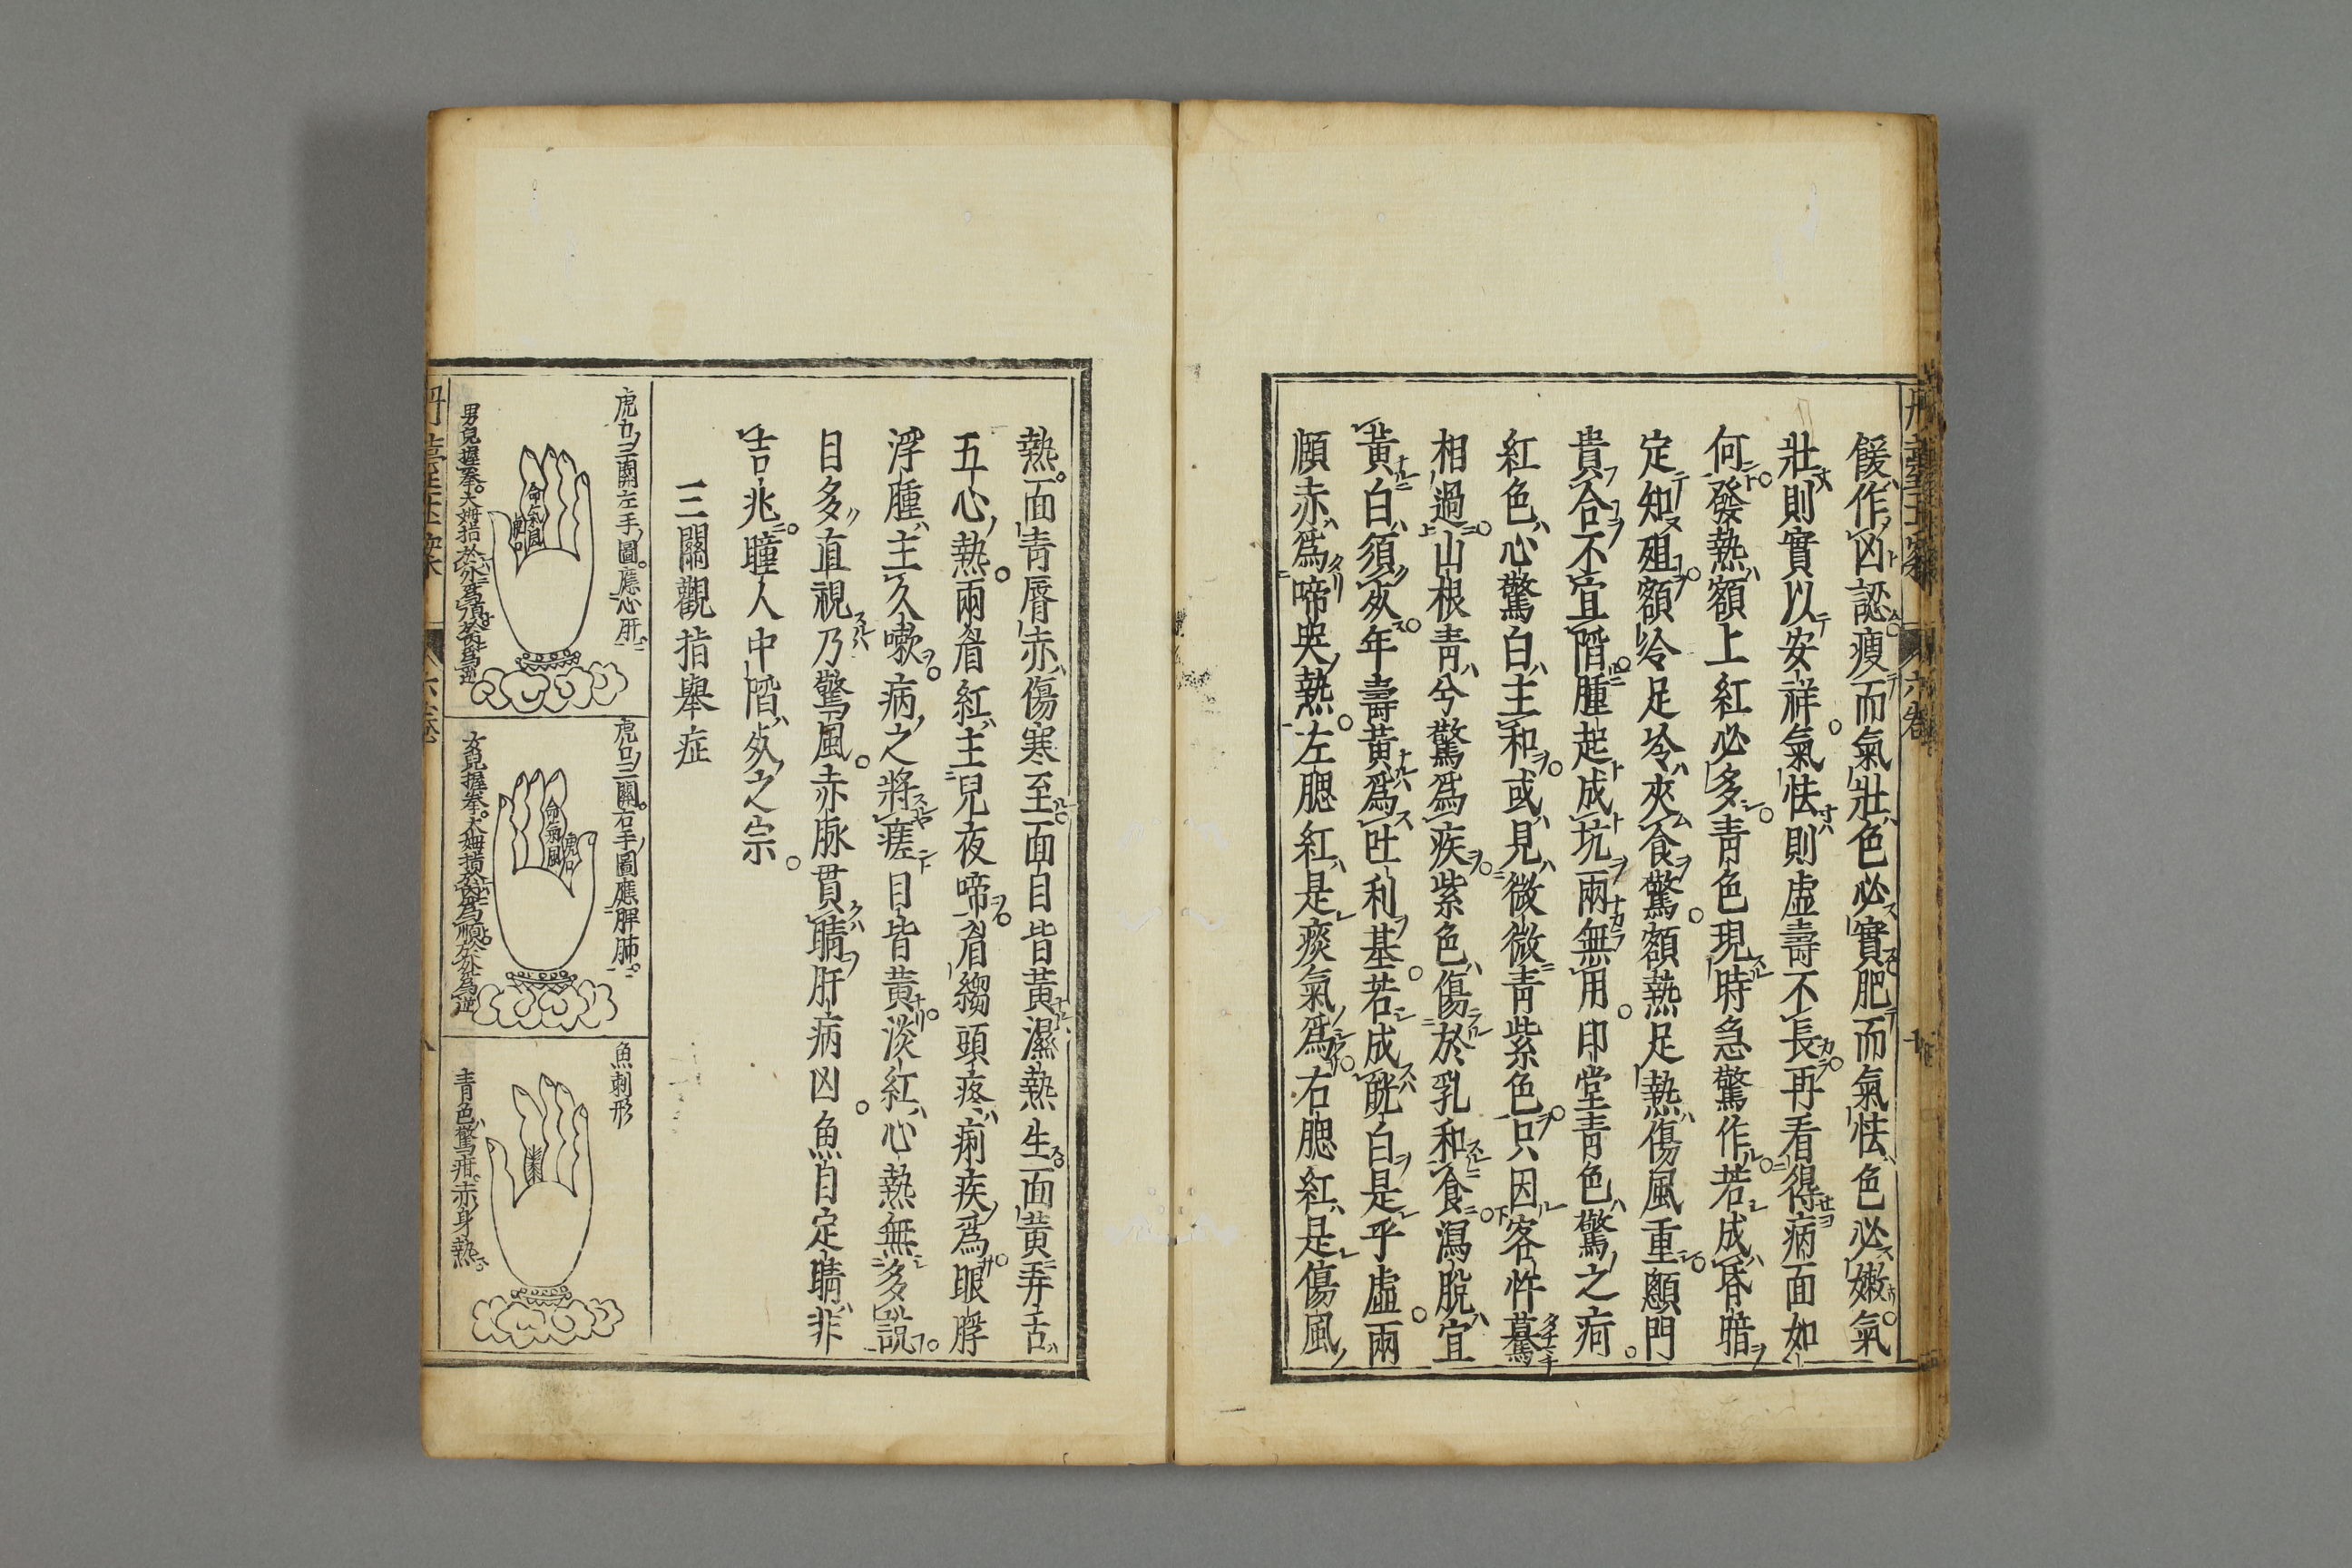 餒作凶認瘦而氣壯色必實肥而氣怯色必嫩氣
壯則實以安祥氣怯則虛壽不長再看得病面如
何發熱額上紅必多青色現時急驚作若成昏暗
定知殂額冷足冷夾食驚額熱足熱傷風重顖門
貴合不宜陷腫起成坑兩無用印堂青色驚之疴
紅色心驚白主和或見微微青紫色只因客忤驀
相過山根青兮驚爲疾紫色傷於乳和食瀉脫宜
黃白須灸年壽黃爲吐利基若成㿠白是乎虛兩
頤赤爲啼哭熱左腮紅是痰氣爲右腮紅是傷風
熱面青唇赤傷寒至面目皆黃濕熱生面黃弄舌
五心熱兩眉紅主兒夜啼眉縐頭疼痢疾爲眼脬
浮腫主久嗽病之將瘥目皆黃淡紅心熱無多說
目多直視乃驚風赤脉貫睛肝病凶魚目定睛非
吉兆瞳人中陷灸之宗
三關觀指舉症
虎口三關左手圖應心肝
命氣風
虎口
男兒握拳大姆指於外爲順於內爲逆
虎口三關右手圖應脾肺
命氣風
虎口
女兒握拳大姆指於內爲順於外爲逆
魚刺形
青色驚疳赤身熱
六卷